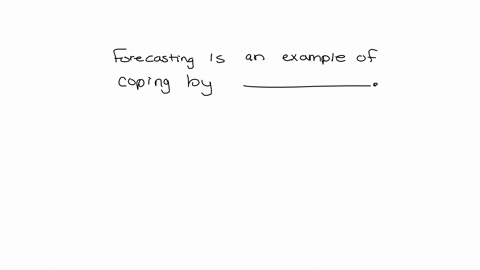 Forecasting is an example of
coping by __________.